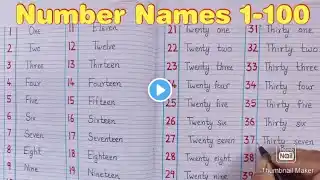 Number Names 1-100
1 One 11 Eleven 21 Twenty one 31 Thirty one
2 Two 12 Twelve 22 Twenty two 32 Thirty two
3 Three 13 Thirteen 23 Twenty three 33 Thirty three
4 Four 14 Fourteen 24 Twenty four 34 Thirty four
5 Five 15 Fifteen 25 Twenty five 35 Thirty five
6 Six 16 Sixteen 26 Twenty six 36 Thirty six
7 Seven 17 Seventeen 27 Twenty seven 37 Thirty seven
8 Eight 18 Eighteen 28 Twenty eight 38
9 Nine 19 Nineteen 29 Twenty nine 39
Thumbnail Maker